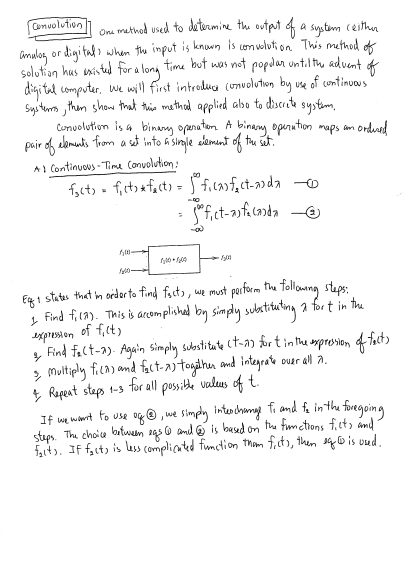 Convolution one method used to determine the output of a system (either
analog or digital) when the input is known is convolution. This method of
solution has existed for a long time but was not popular until the advent of
digital computer. We will first introduce convolution by use of continuous
systems, then show that this method applied also to discrete system.
Convolution is a binary operation. A binary operation maps an ordered
pair of elements from a set into a single element of the set.
A: Continuous-Time Convolution:
f₃(t) = f₁(t) * f₂(t) = ∫_{-∞}^{∞} f₁(λ) f₂(t-λ) dλ — ①
= ∫_{-∞}^{∞} f₁(t-λ) f₂(λ) dλ — ②
f₁(t)
f₁(t) * f₂(t)
f₃(t)
f₂(t)
Eq 1 states that in order to find f₃(t), we must perform the following steps:
1 Find f₁(λ). This is accomplished by simply substituting λ for t in the
expression of f₁(t)
2 Find f₂(t-λ). Again simply substitute (t-λ) for t in the expression of f₂(t)
3 Multiply f₁(λ) and f₂(t-λ) together and integrate over all λ.
4 Repeat steps 1-3 for all possible values of t.
If we want to use eq ②, we simply interchange f₁ and f₂ in the foregoing
steps. The choice between eqs ① and ② is based on the functions f₁(t) and
f₂(t). If f₂(t) is less complicated function than f₁(t), then eq ① is used.